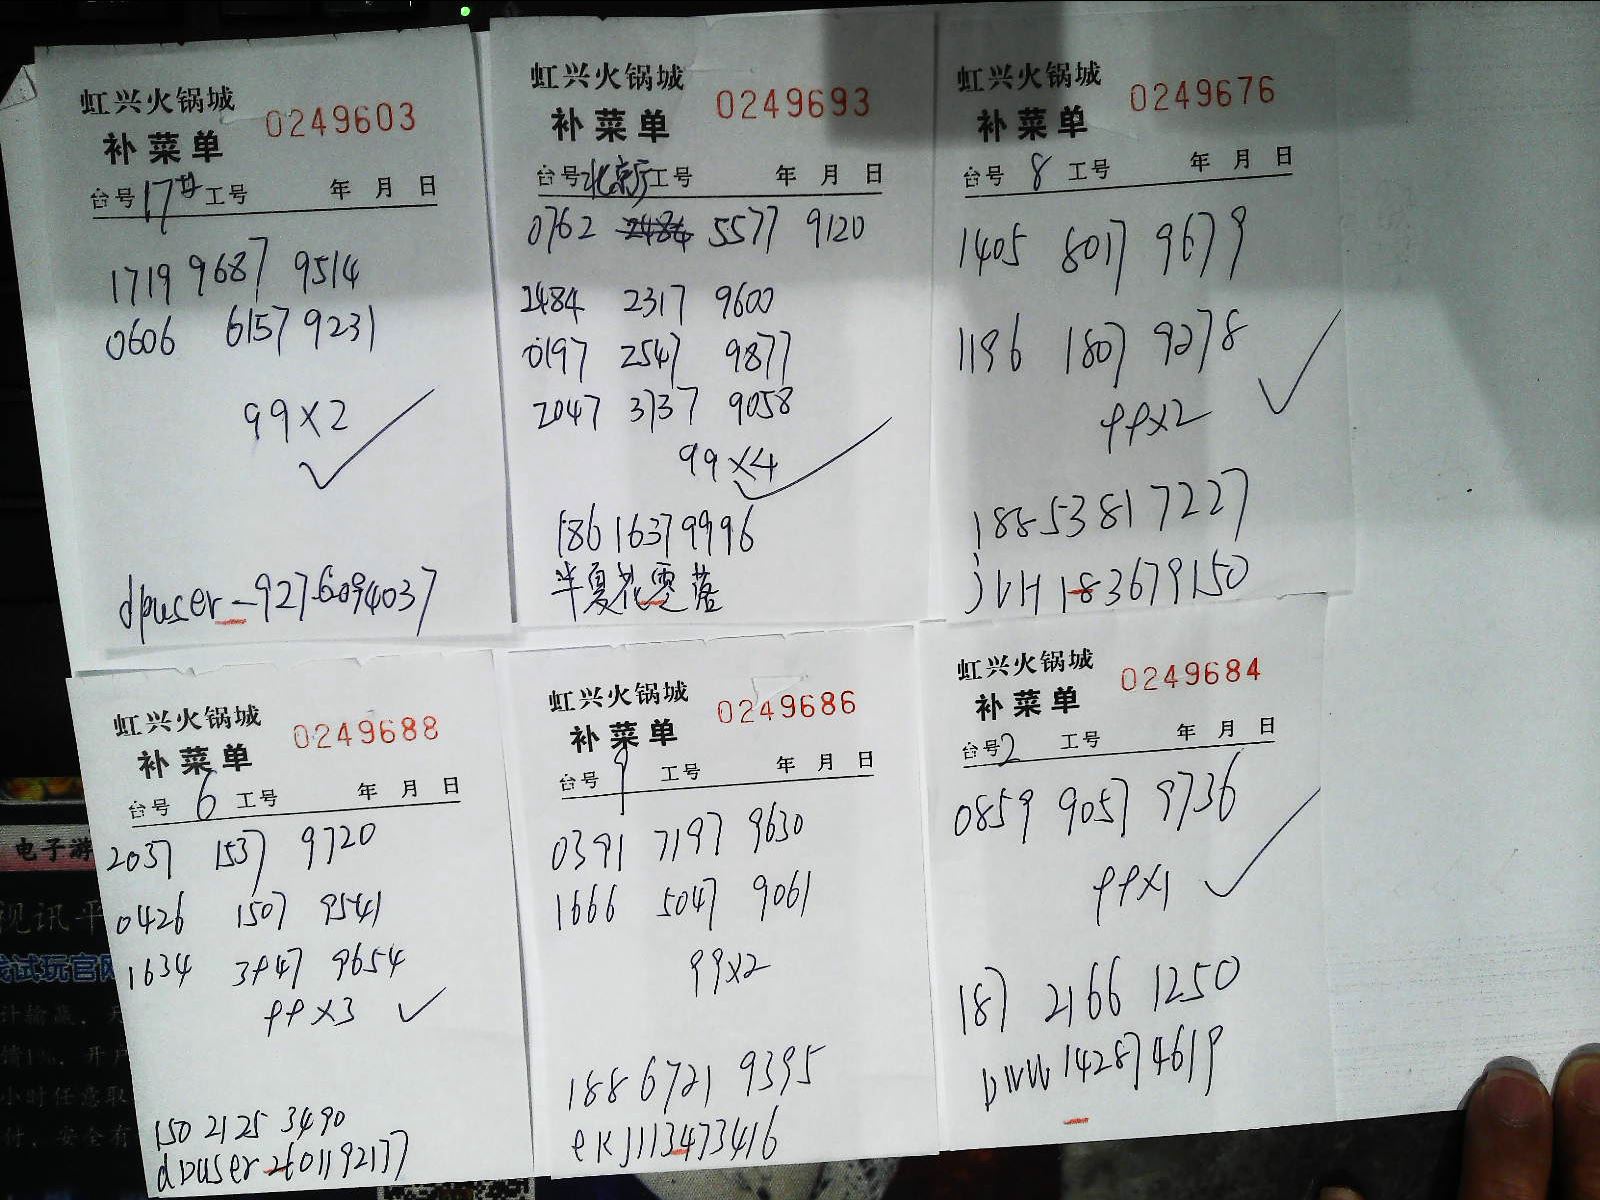 虹兴火锅城 0249603
补菜单
台号 17# 工号 年 月 日
1719 9687 9514
0606 6157 9231
99×2
dpuser-9276094037
虹兴火锅城 0249693
补菜单
台号 北京厅 工号 年 月 日
0762 2484 5577 9120
2484 2317 9600
0197 2547 9877
2047 3737 9058
99×4
186 1637 9996
半夏花零落
虹兴火锅城 0249676
补菜单
台号 8 工号 年 月 日
1405 8017 9679
1196 1807 9278
99×2
18853817227
jVH183679150
虹兴火锅城 0249688
补菜单
台号 6 工号 年 月 日
2037 1537 9720
0426 1507 9541
1634 3947 9654
99×3
150 2125 3490
dpuser-2601192137
虹兴火锅城 0249686
补菜单
台号 9 工号 年 月 日
0391 7197 9630
1666 5047 9061
99×2
188 6721 9395
eKJ1113473416
虹兴火锅城 0249684
补菜单
台号 2 工号 年 月 日
0859 9057 9736
99×1
187 2166 1250
142874619
电子游
视讯平
试玩官网
计输赢.
小时任意取
付,安全有